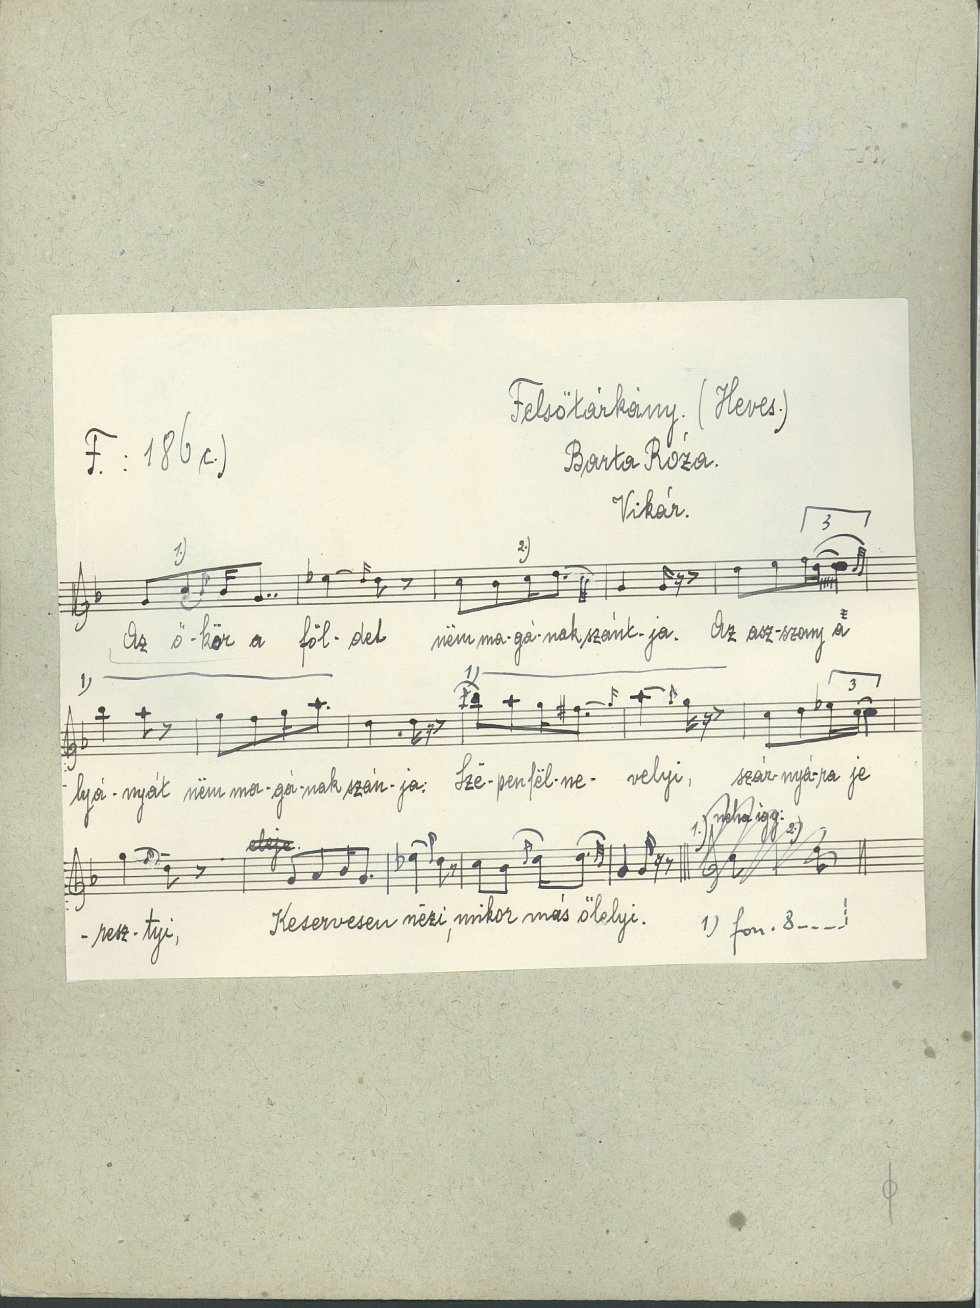 Felsőtárkány. (Heves.)
F.: 186 c.)
Barta Róza.
Vikár.
3
1.) 2.)
Az ö-kör a föl-det nëm ma-gá-nak szánt-ja. Az asz-szony á
1) 1) 3
lyá-nyát nëm ma-gá-nak szán-ja: Szé-pen fël-ne-velyi, szár-nyá-ra je
eleje. 1.) néha így: 2.)
-resz-tyi, Keservesen nézi, mikor más ölelyi.
1) fon. 8----